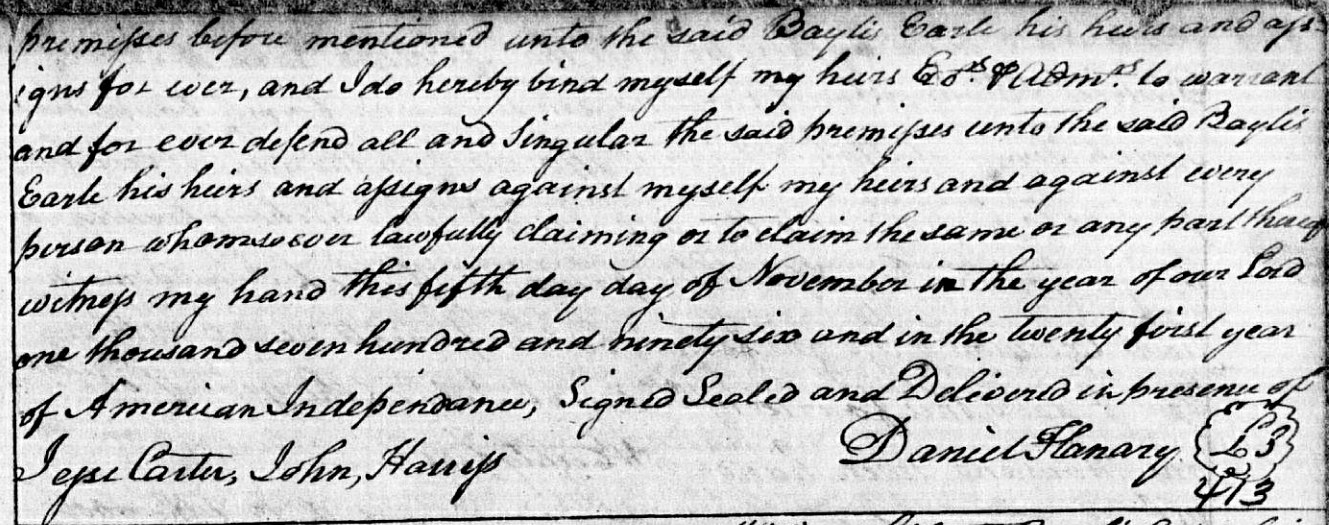 premisses before mentioned unto the said Baylis Earle his heirs and ass-
igns for ever, and I do hereby bind myself my heirs Exrs & Admrs. to warrant
and for ever defend all and Singular the said premisses unto the said Baylis
Earle his heirs and assigns against myself my heirs and against every
person whomsoever lawfully claiming or to claim the same or any part thereof
witness my hand this fifth day day of November in the year of our Lord
one thousand seven hundred and ninety six and in the twenty first year
of American Independance, Signed Sealed and Delivered in presence of
Jesse Carter, John, Harriss Daniel Flanary LS
413